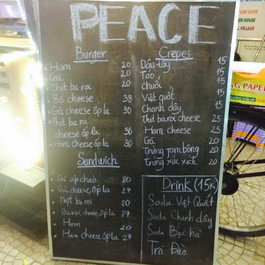 PEACE
Burger
Ham 20
Gà 20
Thịt ba rọi 20
Bò cheese 38
Gà cheese, ốp la 30
Thịt ba rọi
cheese ốp la 30
Ham cheese ốp la 30
Sandwich
Gà cheese, ốp la 27
Thịt ba rọi 20
Ba rọi, cheese, ốp la 27
Ham 20
Ham cheese ốp la 27
Crepes
Dâu tây 15
Táo 15
Chuối 15
Việt quất 15
Chanh dây 15
Thịt ba rọi cheese 25
Ham cheese 25
Gà 20
Trứng, ruốm bông 20
Trứng xúc xích 20
Drink (15k)
Soda Việt Quất
Soda Chanh dây
Soda Bạc hà
Trà Đào
HOUSE
& VILLAGE
PAPER